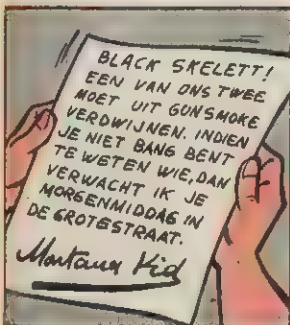 BLACK SKELETT!
EEN VAN ONS TWEE
MOET UIT GUNSMOKE
VERDWIJNEN. INDIEN
JE NIET BANG BENT
TE WETEN WIE, DAN
VERWACHT IK JE
MORGENMIDDAG IN
DE GROTESTRAAT.
Montana Kid